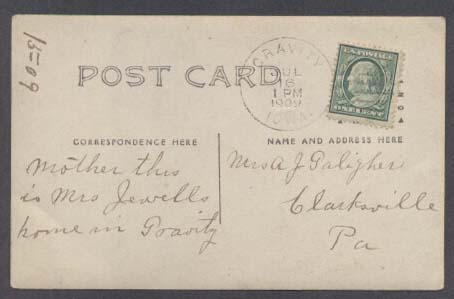 13=09
POST CARD
GRAVITY
JUL
16
1 PM
1909
IOWA
U.S. POSTAGE
ONE CENT
CORRESPONDENCE HERE
NAME AND ADDRESS HERE
Mother this
is Mrs Jewells
home in Gravity
Mrs A J Galigher
Clarksville
Pa